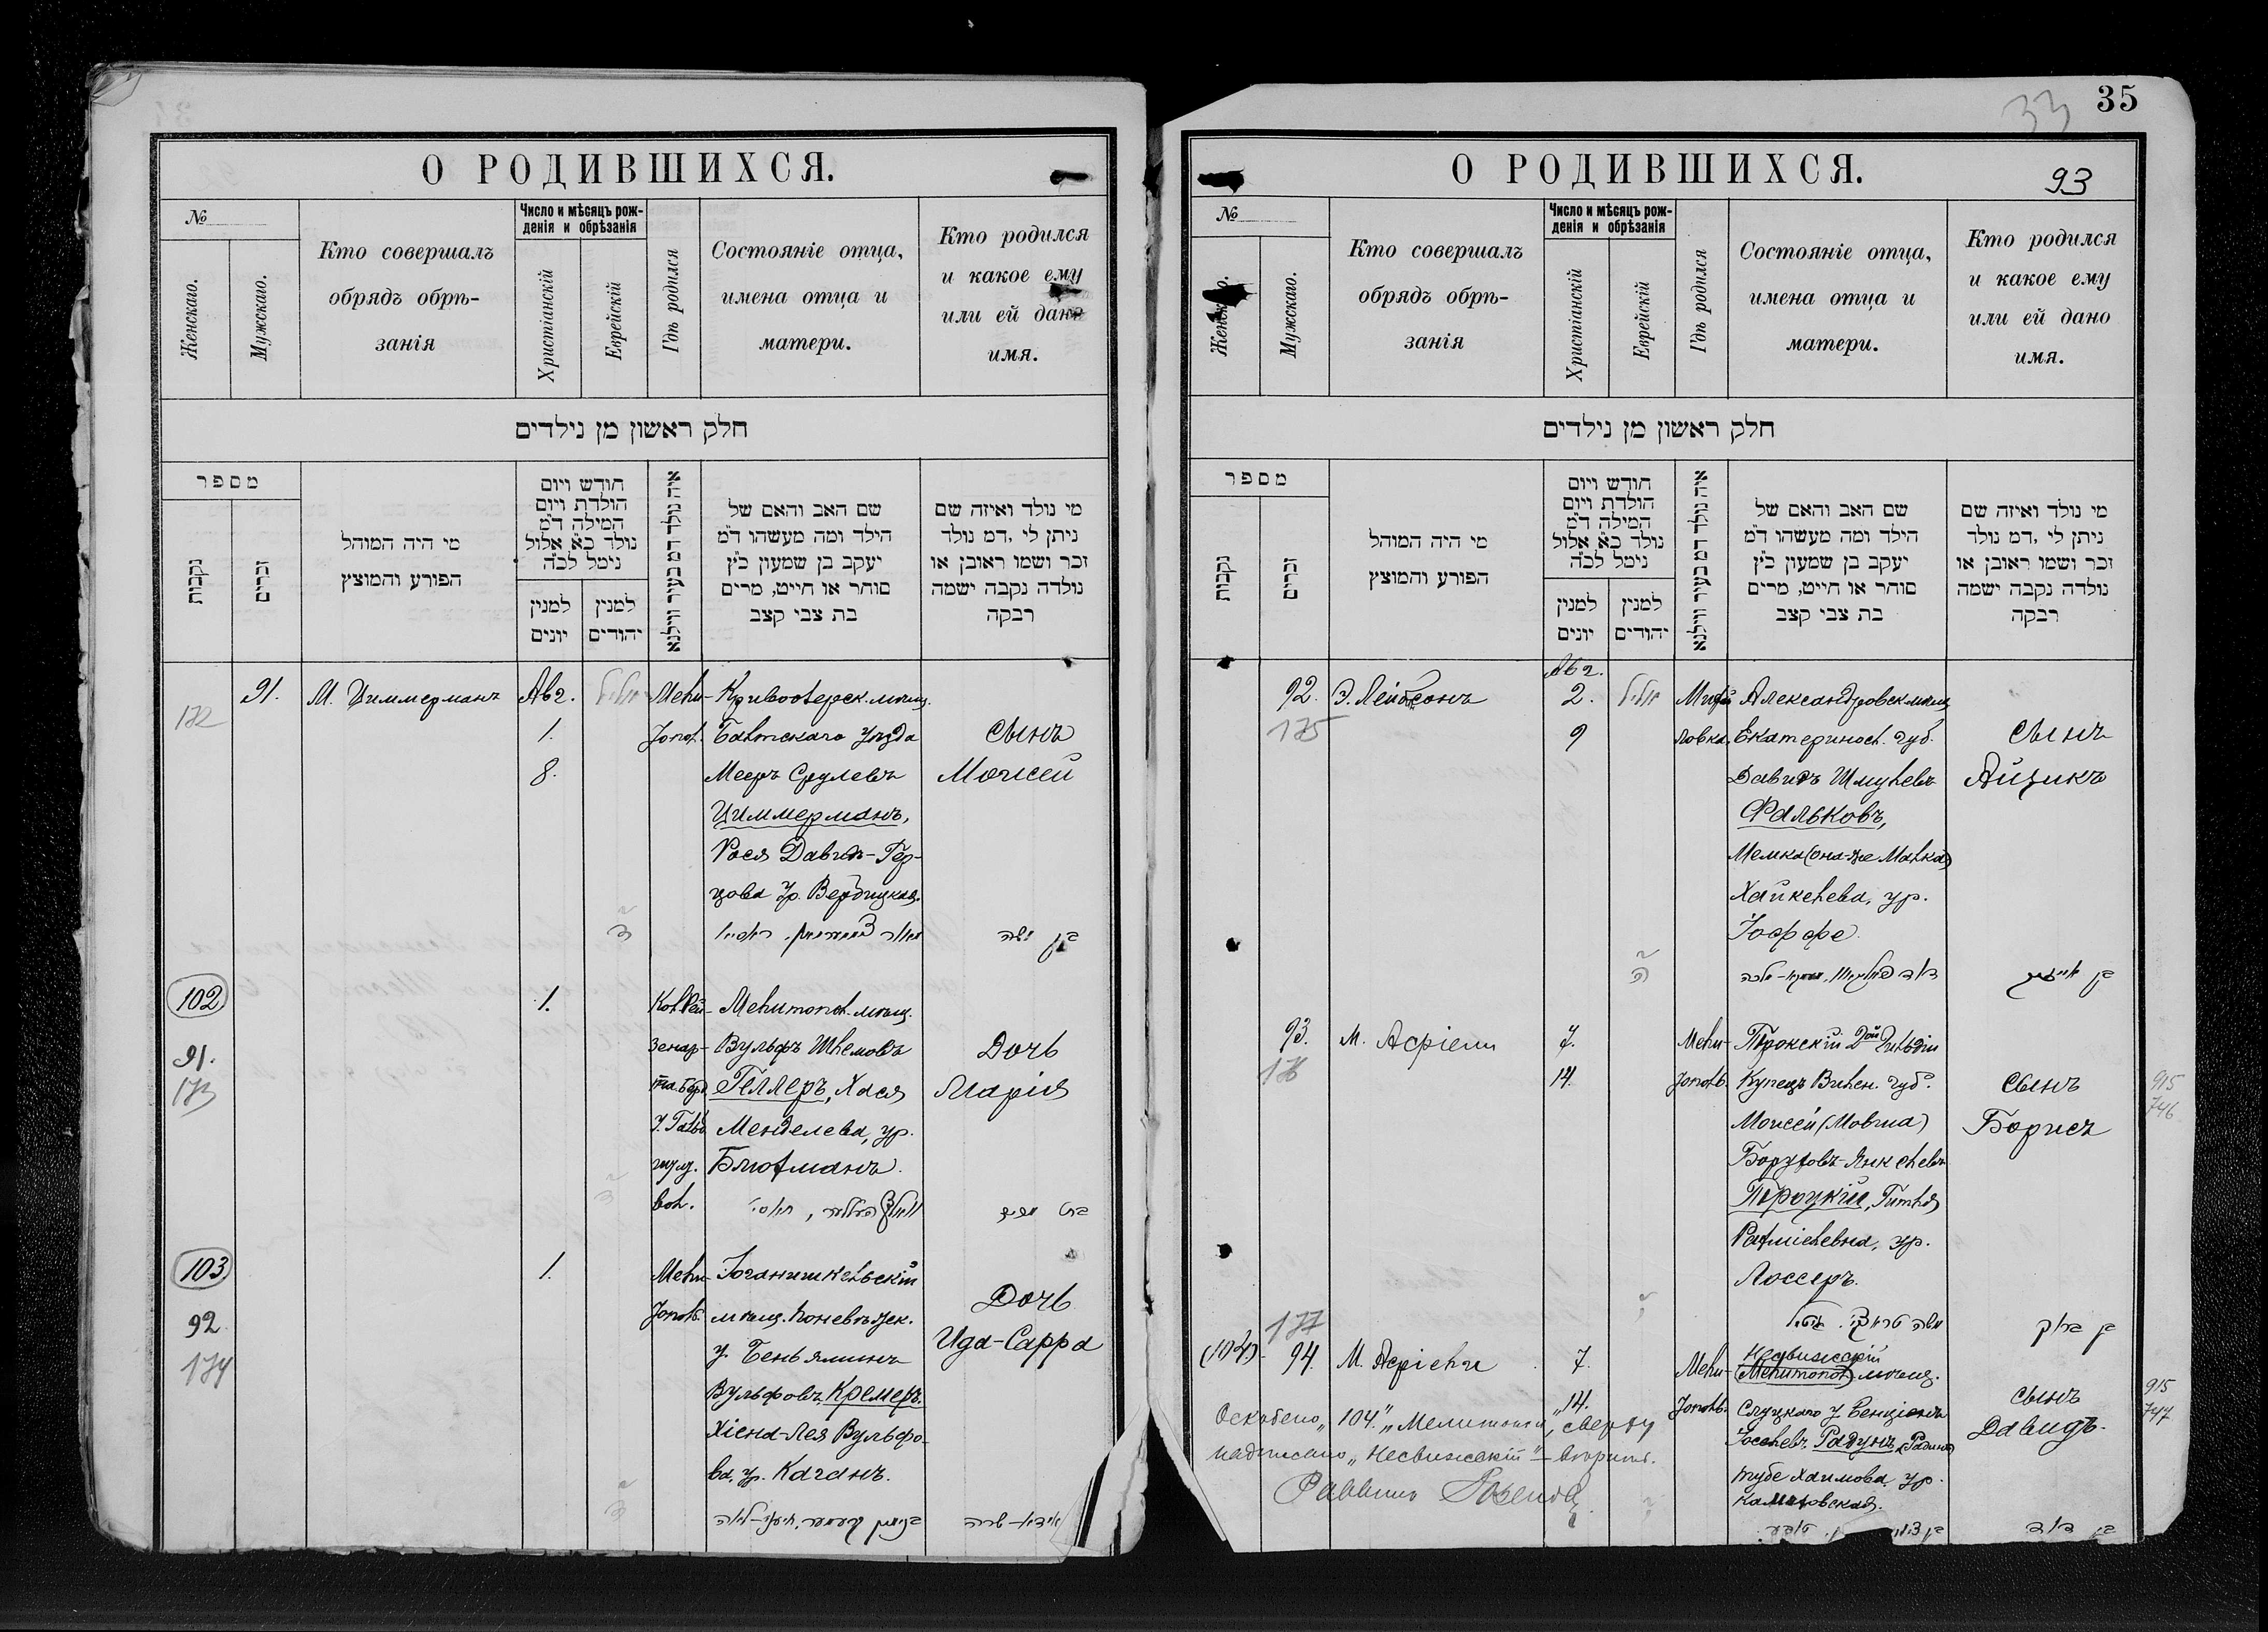 35
33
О РОДИВШИХСЯ.
№
Женскаго.
Мужскаго.
Кто совершалъ
обрядъ обрѣ-
занія
Число и мѣсяцъ рож-
денія и обрѣзанія
Христіанскій
Еврейскій
Годъ родился
Состояніе отца,
имена отца и
матери.
Кто родился
и какое ему
или ей дано
имя.
חלק ראשון מן נילדים
מספר
נקבות
זכרים
מי היה המוהל
הפורע והמוצץ
חודש ויום
הולדת ויום
המילה ד״מ
נולד כ״א אלול
נימל לכ״ה
למנין
יונים
למנין
יהודים
איה נולד דמ בעיר ווילנא
שם האב והאם של
הילד ומה מעשהו ד״מ
יעקב בן שמעון כ״ץ
סוחר או חייט, מרים
בת צבי קצב
מי נולד ואיזה שם
ניתן לי ,דמ נולד
זכר ושמו ראובן או
נולדה נקבה ישמה
רבקה
91.
172
М. Циммерманъ
Авг.
1.
8.
Мели-
Балтскаго уѣзда
Мееръ Срулевъ
Циммерманъ,
Рося Давид-Гер-
цова ур. Бердицкая.
сынъ
Моисей
בן משה
102
91.
173
1.
Мелитоп. мѣщ.
Вульфъ Шлемовъ
Геллеръ, Хася
Менделева, ур.
Блюфманъ.
Дочь
Марія
103
92
174
1.
Мели-
мѣщ. Поневѣжск.
у. Беньяминъ
Вульфовъ Кремеръ.
Хіена-Лея Вульфо-
ва, ур. Каганъ.
Дочь
Ида-Сарра
אידא-שרה
О РОДИВШИХСЯ.
93
№
Женскаго.
Мужскаго.
Кто совершалъ
обрядъ обрѣ-
занія
Число и мѣсяцъ рож-
денія и обрѣзанія
Христіанскій
Еврейскій
Годъ родился
Состояніе отца,
имена отца и
матери.
Кто родился
и какое ему
или ей дано
имя.
חלק ראשון מן נילדים
מספר
נקבות
זכרים
מי היה המוהל
הפורע והמוצץ
חודש ויום
הולדת ויום
המילה ד״מ
נולד כ״א אלול
נימל לכ״ה
למנין
יונים
למנין
יהודים
איה נולד דמ בעיר ווילנא
שם האב והאם של
הילד ומה מעשהו ד״מ
יעקב בן שמעון כ״ץ
סוחר או חייט, מרים
בת צבי קצב
מי נולד ואיזה שם
ניתן לי ,דמ נולד
זכר ושמו ראובן או
נולדה נקבה ישמה
רבקה
92.
175
Авг.
2.
9
Александровск. мѣщ.
Екатеринос. губ.
Давидъ Шмулевъ
Фальковъ,
Хайкелева, ур.
Іоффе.
сынъ
Айзикъ
93.
176
М. Асріели
7.
14.
Мели-
Купецъ Вилен. губ.
Моисей (Мовша)
Троцкій, Гитля
ур.
Лоссеръ.
сынъ
Борисъ
משה טראצקי. גיטל
בן ברוך
915
746
177
(104)
94.
М. Асріели
7.
14.
Мели-
Несвижскій
(Мелитопол) мѣщ.
Слуцкаго у. Бенціонъ
Іоселевъ Радунъ
Хаимова, ур.
сынъ
Давидъ.
בן דוד
915
747
Оскоблено „104", „Мелитопол", сверху
надписано „Несвижскій" - вѣрить.
Раввинъ